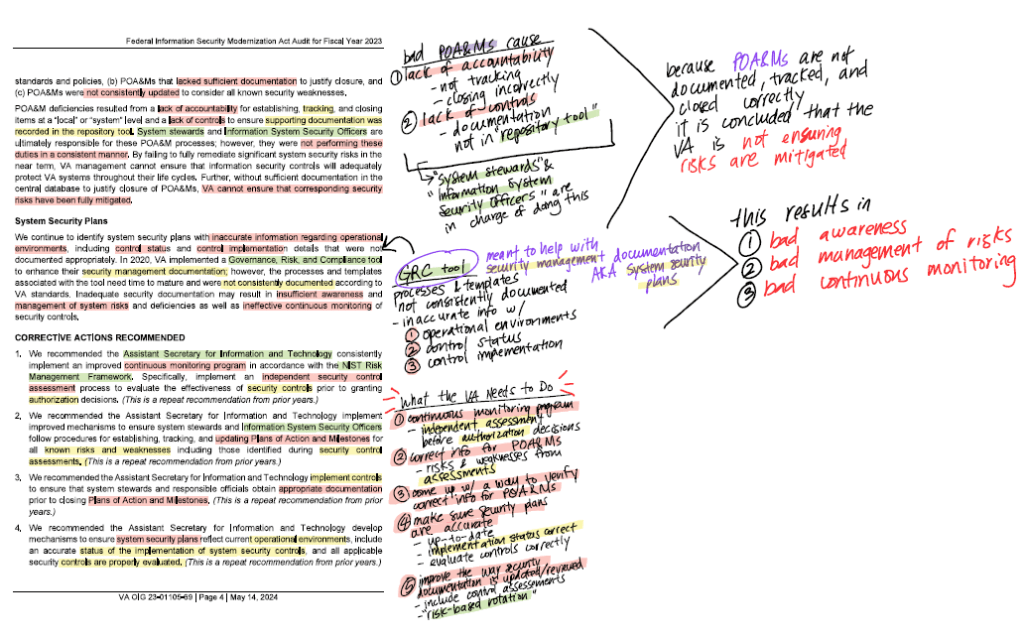 Federal Information Security Modernization Act Audit for Fiscal Year 2023
standards and policies, (b) POA&Ms that lacked sufficient documentation to justify closure, and
(c) POA&Ms were not consistently updated to consider all known security weaknesses.
POA&M deficiencies resulted from a lack of accountability for establishing, tracking, and closing
items at a "local" or "system" level and a lack of controls to ensure supporting documentation was
recorded in the repository tool. System stewards and Information System Security Officers are
ultimately responsible for these POA&M processes; however, they were not performing these
duties in a consistent manner. By failing to fully remediate significant system security risks in the
near term, VA management cannot ensure that information security controls will adequately
protect VA systems throughout their life cycles. Further, without sufficient documentation in the
central database to justify closure of POA&Ms, VA cannot ensure that corresponding security
risks have been fully mitigated.
System Security Plans
We continue to identify system security plans with inaccurate information regarding operational
environments, including control status and control implementation details that were not
documented appropriately. In 2020, VA implemented a Governance, Risk, and Compliance tool
to enhance their security management documentation; however, the processes and templates
associated with the tool need time to mature and were not consistently documented according to
VA standards. Inadequate security documentation may result in insufficient awareness and
management of system risks and deficiencies as well as ineffective continuous monitoring of
security controls.
CORRECTIVE ACTIONS RECOMMENDED
1. We recommended the Assistant Secretary for Information and Technology consistently
implement an improved continuous monitoring program in accordance with the NIST Risk
Management Framework. Specifically, implement an independent security control
assessment process to evaluate the effectiveness of security controls prior to granting
authorization decisions. (This is a repeat recommendation from prior years.)
2. We recommended the Assistant Secretary for Information and Technology implement
improved mechanisms to ensure system stewards and Information System Security Officers
follow procedures for establishing, tracking, and updating Plans of Action and Milestones for
all known risks and weaknesses including those identified during security control
assessments. (This is a repeat recommendation from prior years.)
3. We recommended the Assistant Secretary for Information and Technology implement controls
to ensure that system stewards and responsible officials obtain appropriate documentation
prior to closing Plans of Action and Milestones. (This is a repeat recommendation from prior
years.)
4. We recommended the Assistant Secretary for Information and Technology develop
mechanisms to ensure system security plans reflect current operational environments, include
an accurate status of the implementation of system security controls, and all applicable
security controls are properly evaluated. (This is a repeat recommendation from prior years.)
VA OIG 23-01105-69 | Page 4 | May 14, 2024
bad POA&Ms cause
① lack of accountability
- not tracking
- closing incorrectly
② lack of controls
- documentation
not in "repository tool"
"System stewards" &
"Information System
Security Officers" are
in charge of doing this
because POA&Ms are not
documented, tracked, and
closed correctly
it is concluded that the
VA is not ensuring
risks are mitigated
GRC tool
meant to help with
security management documentation
AKA system security
plans
processes & templates
not consistently documented
- inaccurate info w/
① operational environments
② control status
③ control implementation
this results in
① bad awareness
② bad management of risks
③ bad continuous monitoring
What the VA Needs to Do
① continuous monitoring program
- independent assessment
before authorization decisions
② correct info for POA&Ms
- risks & weaknesses from
assessments
③ come up w/ a way to verify
correct info for POA&Ms
④ make sure security plans
are accurate
- up-to-date
- implementation status correct
- evaluate controls correctly
⑤ improve the way security
documentation is updated/reviewed
- include control assessments
- "risk-based rotation"